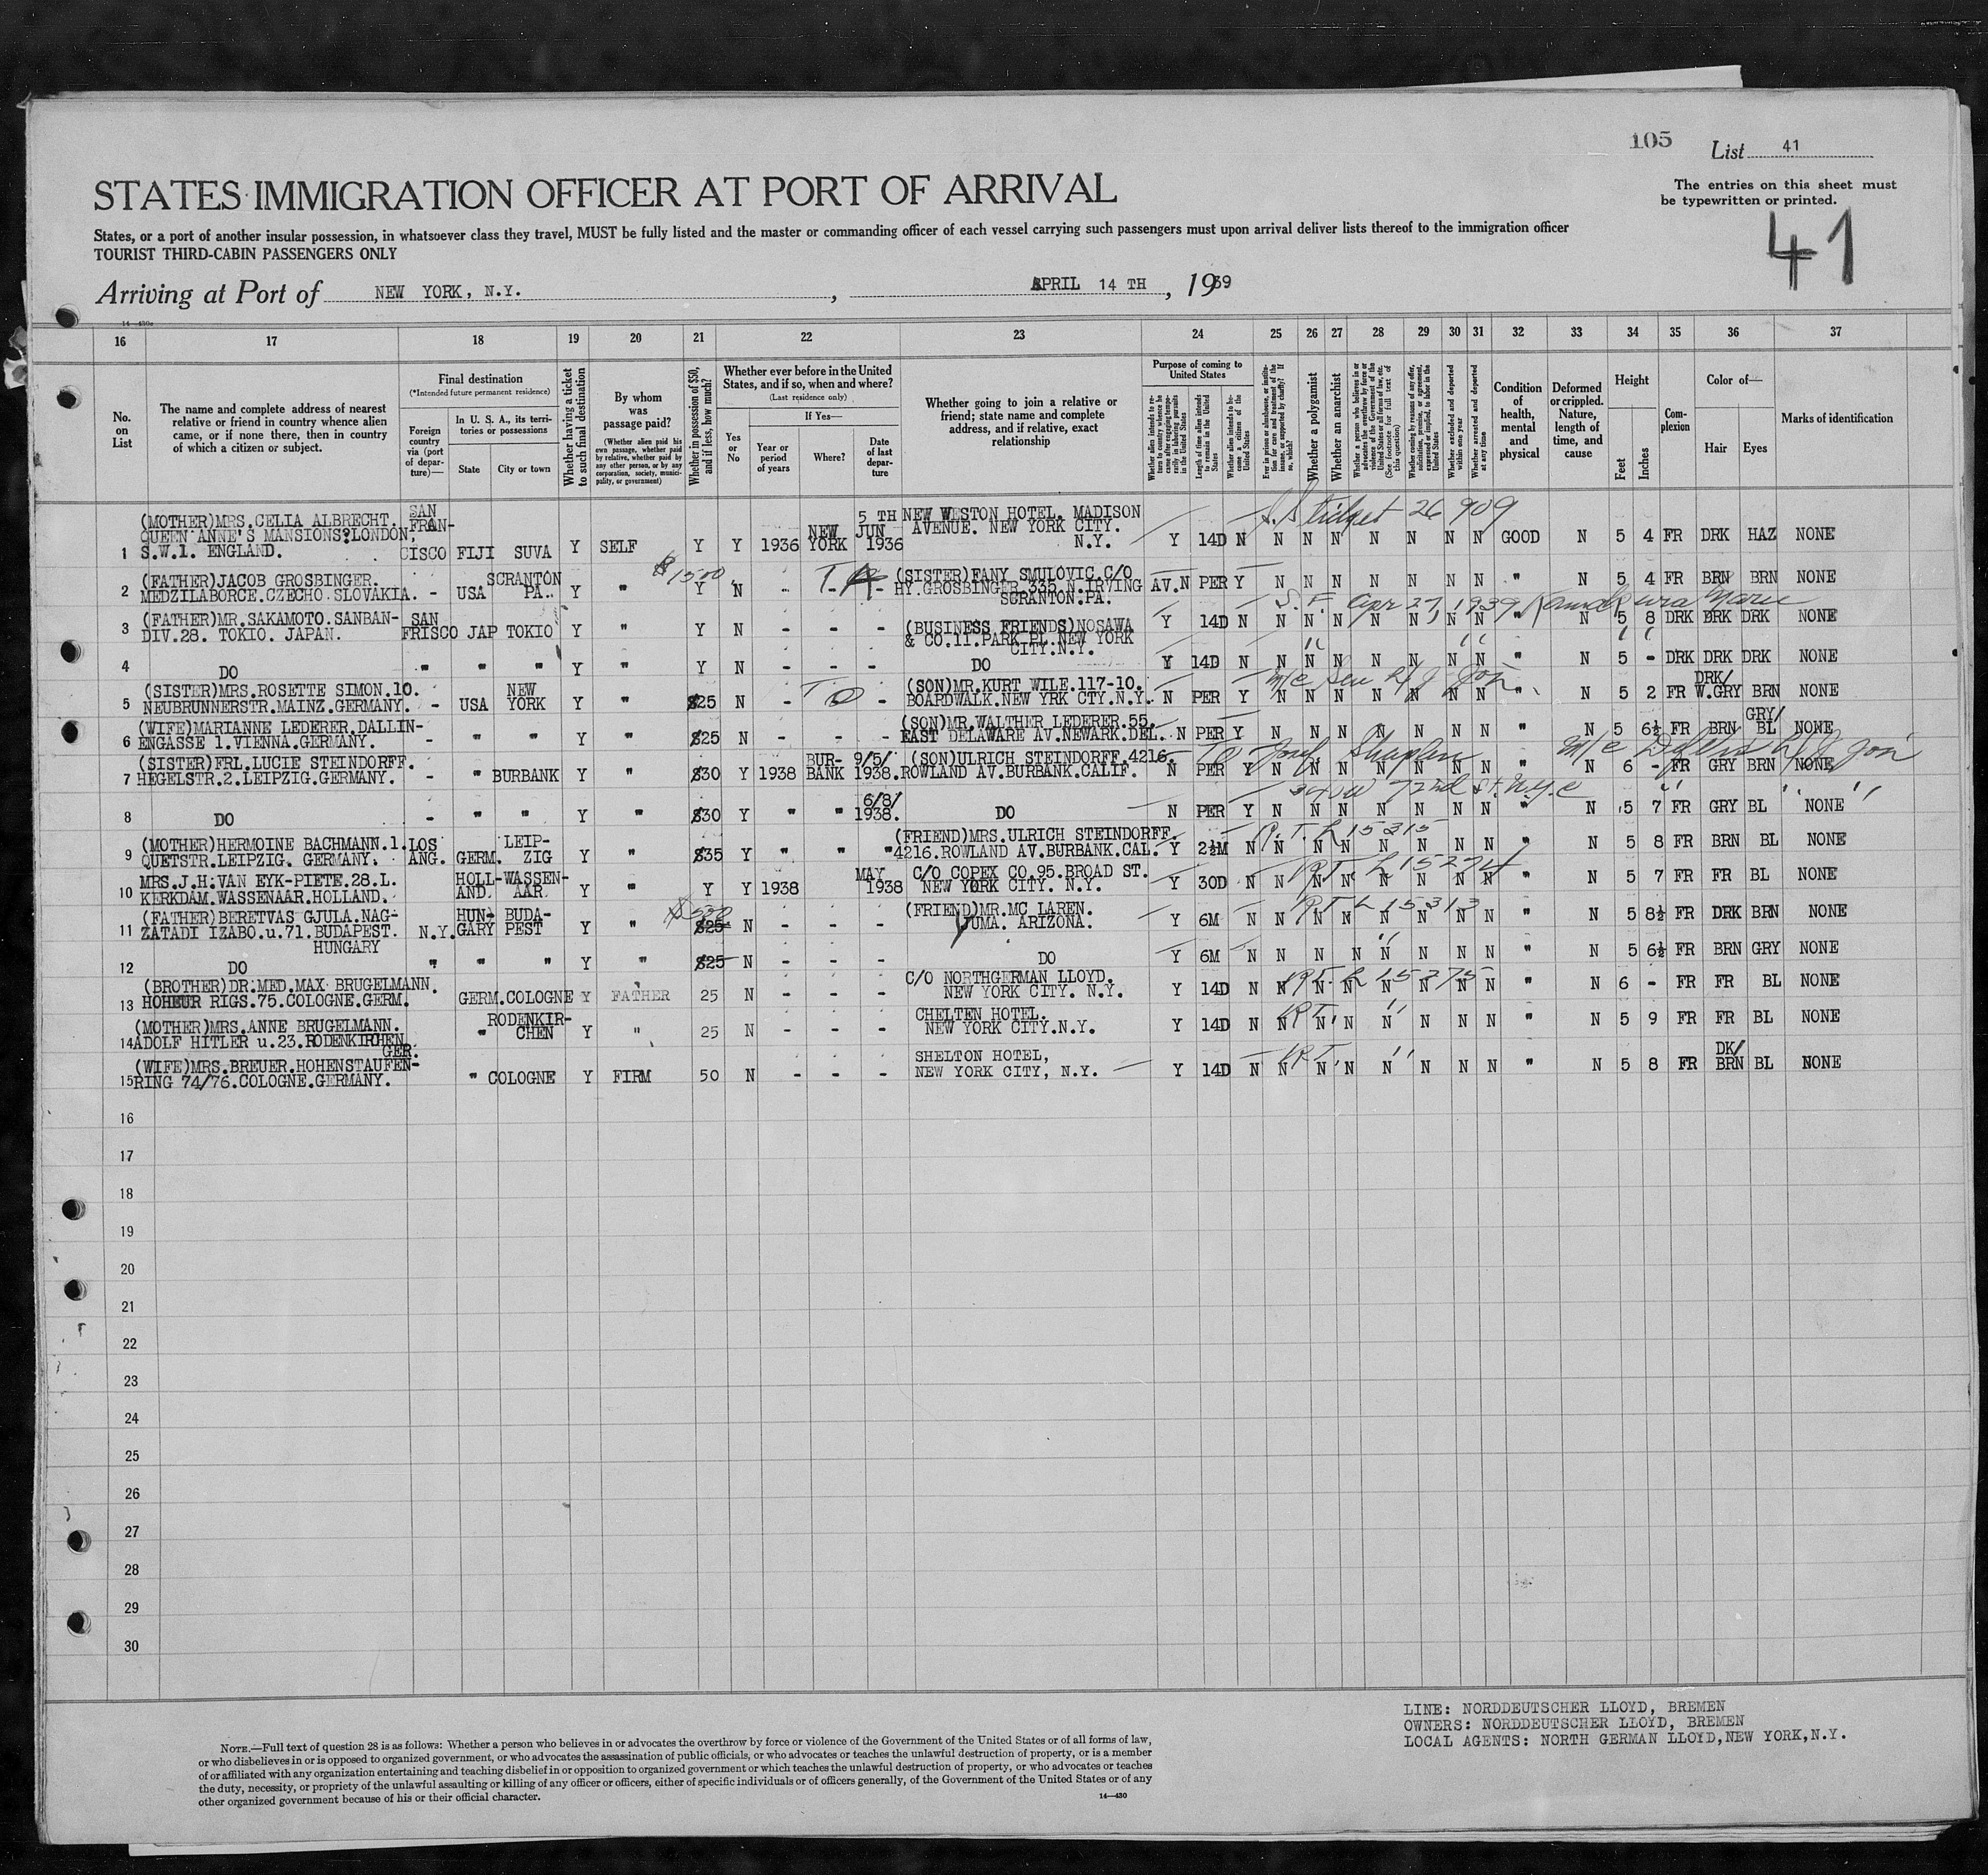 105
List 41
STATES IMMIGRATION OFFICER AT PORT OF ARRIVAL
The entries on this sheet must
be typewritten or printed.
41
States, or a port of another insular possession, in whatsoever class they travel, MUST be fully listed and the master or commanding officer of each vessel carrying such passengers must upon arrival deliver lists thereof to the immigration officer
TOURIST THIRD-CABIN PASSENGERS ONLY
Arriving at Port of NEW YORK, N.Y. , APRIL 14 TH , 1939
14—430c
16 17 18 19 20 21 22 23 24 25 26 27 28 29 30 31 32 33 34 35 36 37
No. on List
The name and complete address of nearest relative or friend in country whence alien came, or if none there, then in country of which a citizen or subject.
Final destination
(*Intended future permanent residence)
Foreign country via (port of departure)—
In U. S. A., its territories or possessions
State
City or town
Whether having a ticket to such final destination
By whom was passage paid?
(Whether alien paid his own passage, whether paid by relative, whether paid by any other person, or by any corporation, society, municipality, or government)
Whether in possession of $50, and if less, how much?
Whether ever before in the United States, and if so, when and where?
(Last residence only)
Yes or No
If Yes—
Year or period of years
Where?
Date of last departure
Whether going to join a relative or friend; state name and complete address, and if relative, exact relationship
Purpose of coming to United States
Length of time alien intends to remain in the United States
Whether alien intends to become a citizen of the United States
Whether a polygamist
Whether an anarchist
Whether excluded and deported within one year
Whether arrested and deported at any time
Condition of health, mental and physical
Deformed or crippled. Nature, length of time, and cause
Height
Feet
Inches
Complexion
Color of—
Hair
Eyes
Marks of identification
1 (MOTHER)MRS.CELIA ALBRECHT. QUEEN ANNE'S MANSIONS.LONDON, S.W.1. ENGLAND. SAN FRAN-CISCO FIJI SUVA Y SELF Y Y 1936 NEW YORK 5 TH JUN 1936 NEW WESTON HOTEL. MADISON AVENUE. NEW YORK CITY. N.Y. Y 14D N N N N N N N N GOOD N 5 4 FR DRK HAZ NONE
26 909
$1500
2 (FATHER)JACOB GROSBINGER. MEDZILABORCE.CZECHO SLOVAKIA. - USA SCRANTON PA. Y " Y N - - - (SISTER)FANY SMULOVIC.C/O HY.GROSBINGER.335 N.IRVING AV. SCRANTON.PA. N PER Y N N N N N N N " N 5 4 FR BRN BRN NONE
S.F. Apr 27, 1939 Kamakura Maru
3 (FATHER)MR.SAKAMOTO.SANBAN-DIV.28. TOKIO. JAPAN. SAN FRISCO JAP TOKIO Y " Y N - - - (BUSINESS FRIENDS)NOSAWA & CO.11.PARK PL.NEW YORK CITY.N.Y. Y 14D N N N N N N N N " N 5 8 DRK DRK DRK NONE
4 DO " " " Y " Y N - - - DO Y 14D N N N N N N N N " N 5 - DRK DRK DRK NONE
5 (SISTER)MRS.ROSETTE SIMON.10. NEUBRUNNERSTR.MAINZ.GERMANY. - USA NEW YORK Y " $25 N - - (SON)MR.KURT WILE.117-10. BOARDWALK.NEW YRK CTY.N.Y. N PER Y N N N N N N N " N 5 2 FR DRK/W.GRY BRN NONE
6 (WIFE)MARIANNE LEDERER.DALLIN-ENGASSE 1.VIENNA.GERMANY. - " " Y " $25 N - - - (SON)MR.WALTHER LEDERER.55. EAST DELAWARE AV.NEWARK.DEL. N PER Y N N N N N N N " N 5 6½ FR BRN GRY/BL NONE
7 (SISTER)FRL.LUCIE STEINDORFF. HEGELSTR.2.LEIPZIG.GERMANY. - " BURBANK Y " $30 Y 1938 BUR-BANK 9/5/1938. (SON)ULRICH STEINDORFF.4216. ROWLAND AV.BURBANK.CALIF. N PER Y N N N N N N N " N 6 - FR GRY BRN NONE
72nd St. N.Y.C
8 DO - " " Y " $30 Y " " 6/8/1938. DO N PER Y N N N N N N N " N 5 7 FR GRY BL NONE
R.T. L 15315
9 (MOTHER)HERMOINE BACHMANN.1. QUETSTR.LEIPZIG. GERMANY. LOS ANG. GERM. LEIP-ZIG Y " $35 Y " " " (FRIEND)MRS.ULRICH STEINDORFF. 4216.ROWLAND AV.BURBANK.CAL. Y 2½M N N N N N N N N " N 5 8 FR BRN BL NONE
R.T. L 15274
10 MRS.J.H.VAN EYK-PIETE.28.L. KERKDAM.WASSENAAR.HOLLAND. HOLL-AND. WASSEN-AAR. Y " Y Y 1938 MAY 1938 C/O COPEX CO.95.BROAD ST. NEW YORK CITY. N.Y. Y 30D N N N N N N N N " N 5 7 FR FR BL NONE
R.T. L 15313
11 (FATHER)BERETVAS GJULA.NAG-ZATADI IZABO.u.71.BUDAPEST. HUNGARY N.Y. HUN-GARY BUDA-PEST Y " $25 $500 N - - - (FRIEND)MR.MC LAREN. YUMA. ARIZONA. Y 6M N N N N N N N N " N 5 8½ FR DRK BRN NONE
12 DO " " " Y " $25 N - - - DO Y 6M N N N N N N N N " N 5 6½ FR BRN GRY NONE
R.T. L 15275
13 (BROTHER)DR.MED.MAX BRUGELMANN. HOHEUR RIGS.75.COLOGNE.GERM. GERM. COLOGNE Y FATHER 25 N - - - C/O NORTHGERMAN LLOYD. NEW YORK CITY. N.Y. Y 14D N N N N N N N N " N 6 - FR FR BL NONE
R.T. "
14 (MOTHER)MRS.ANNE BRUGELMANN. ADOLF HITLER u.23.RODENKIRCHEN GER. " RODENKIR-CHEN Y " 25 N - - - CHELTEN HOTEL. NEW YORK CITY.N.Y. Y 14D N N N N N N N N " N 5 9 FR FR BL NONE
R.T. "
15 (WIFE)MRS.BREUER.HOHENSTAUFEN-RING 74/76.COLOGNE.GERMANY. " COLOGNE Y FIRM 50 N - - - SHELTON HOTEL, NEW YORK CITY, N.Y. Y 14D N N N N N N N N " N 5 8 FR DK/BRN BL NONE
16
17
18
19
20
21
22
23
24
25
26
27
28
29
30
LINE: NORDDEUTSCHER LLOYD, BREMEN
OWNERS: NORDDEUTSCHER LLOYD, BREMEN
LOCAL AGENTS: NORTH GERMAN LLOYD,NEW YORK,N.Y.
NOTE.—Full text of question 28 is as follows: Whether a person who believes in or advocates the overthrow by force or violence of the Government of the United States or of all forms of law,
or who disbelieves in or is opposed to organized government, or who advocates the assassination of public officials, or who advocates or teaches the unlawful destruction of property, or is a member
of or affiliated with any organization entertaining and teaching disbelief in or opposition to organized government or which teaches the unlawful destruction of property, or who advocates or teaches
the duty, necessity, or propriety of the unlawful assaulting or killing of any officer or officers, either of specific individuals or of officers generally, of the Government of the United States or of any
other organized government because of his or their official character.
14—430